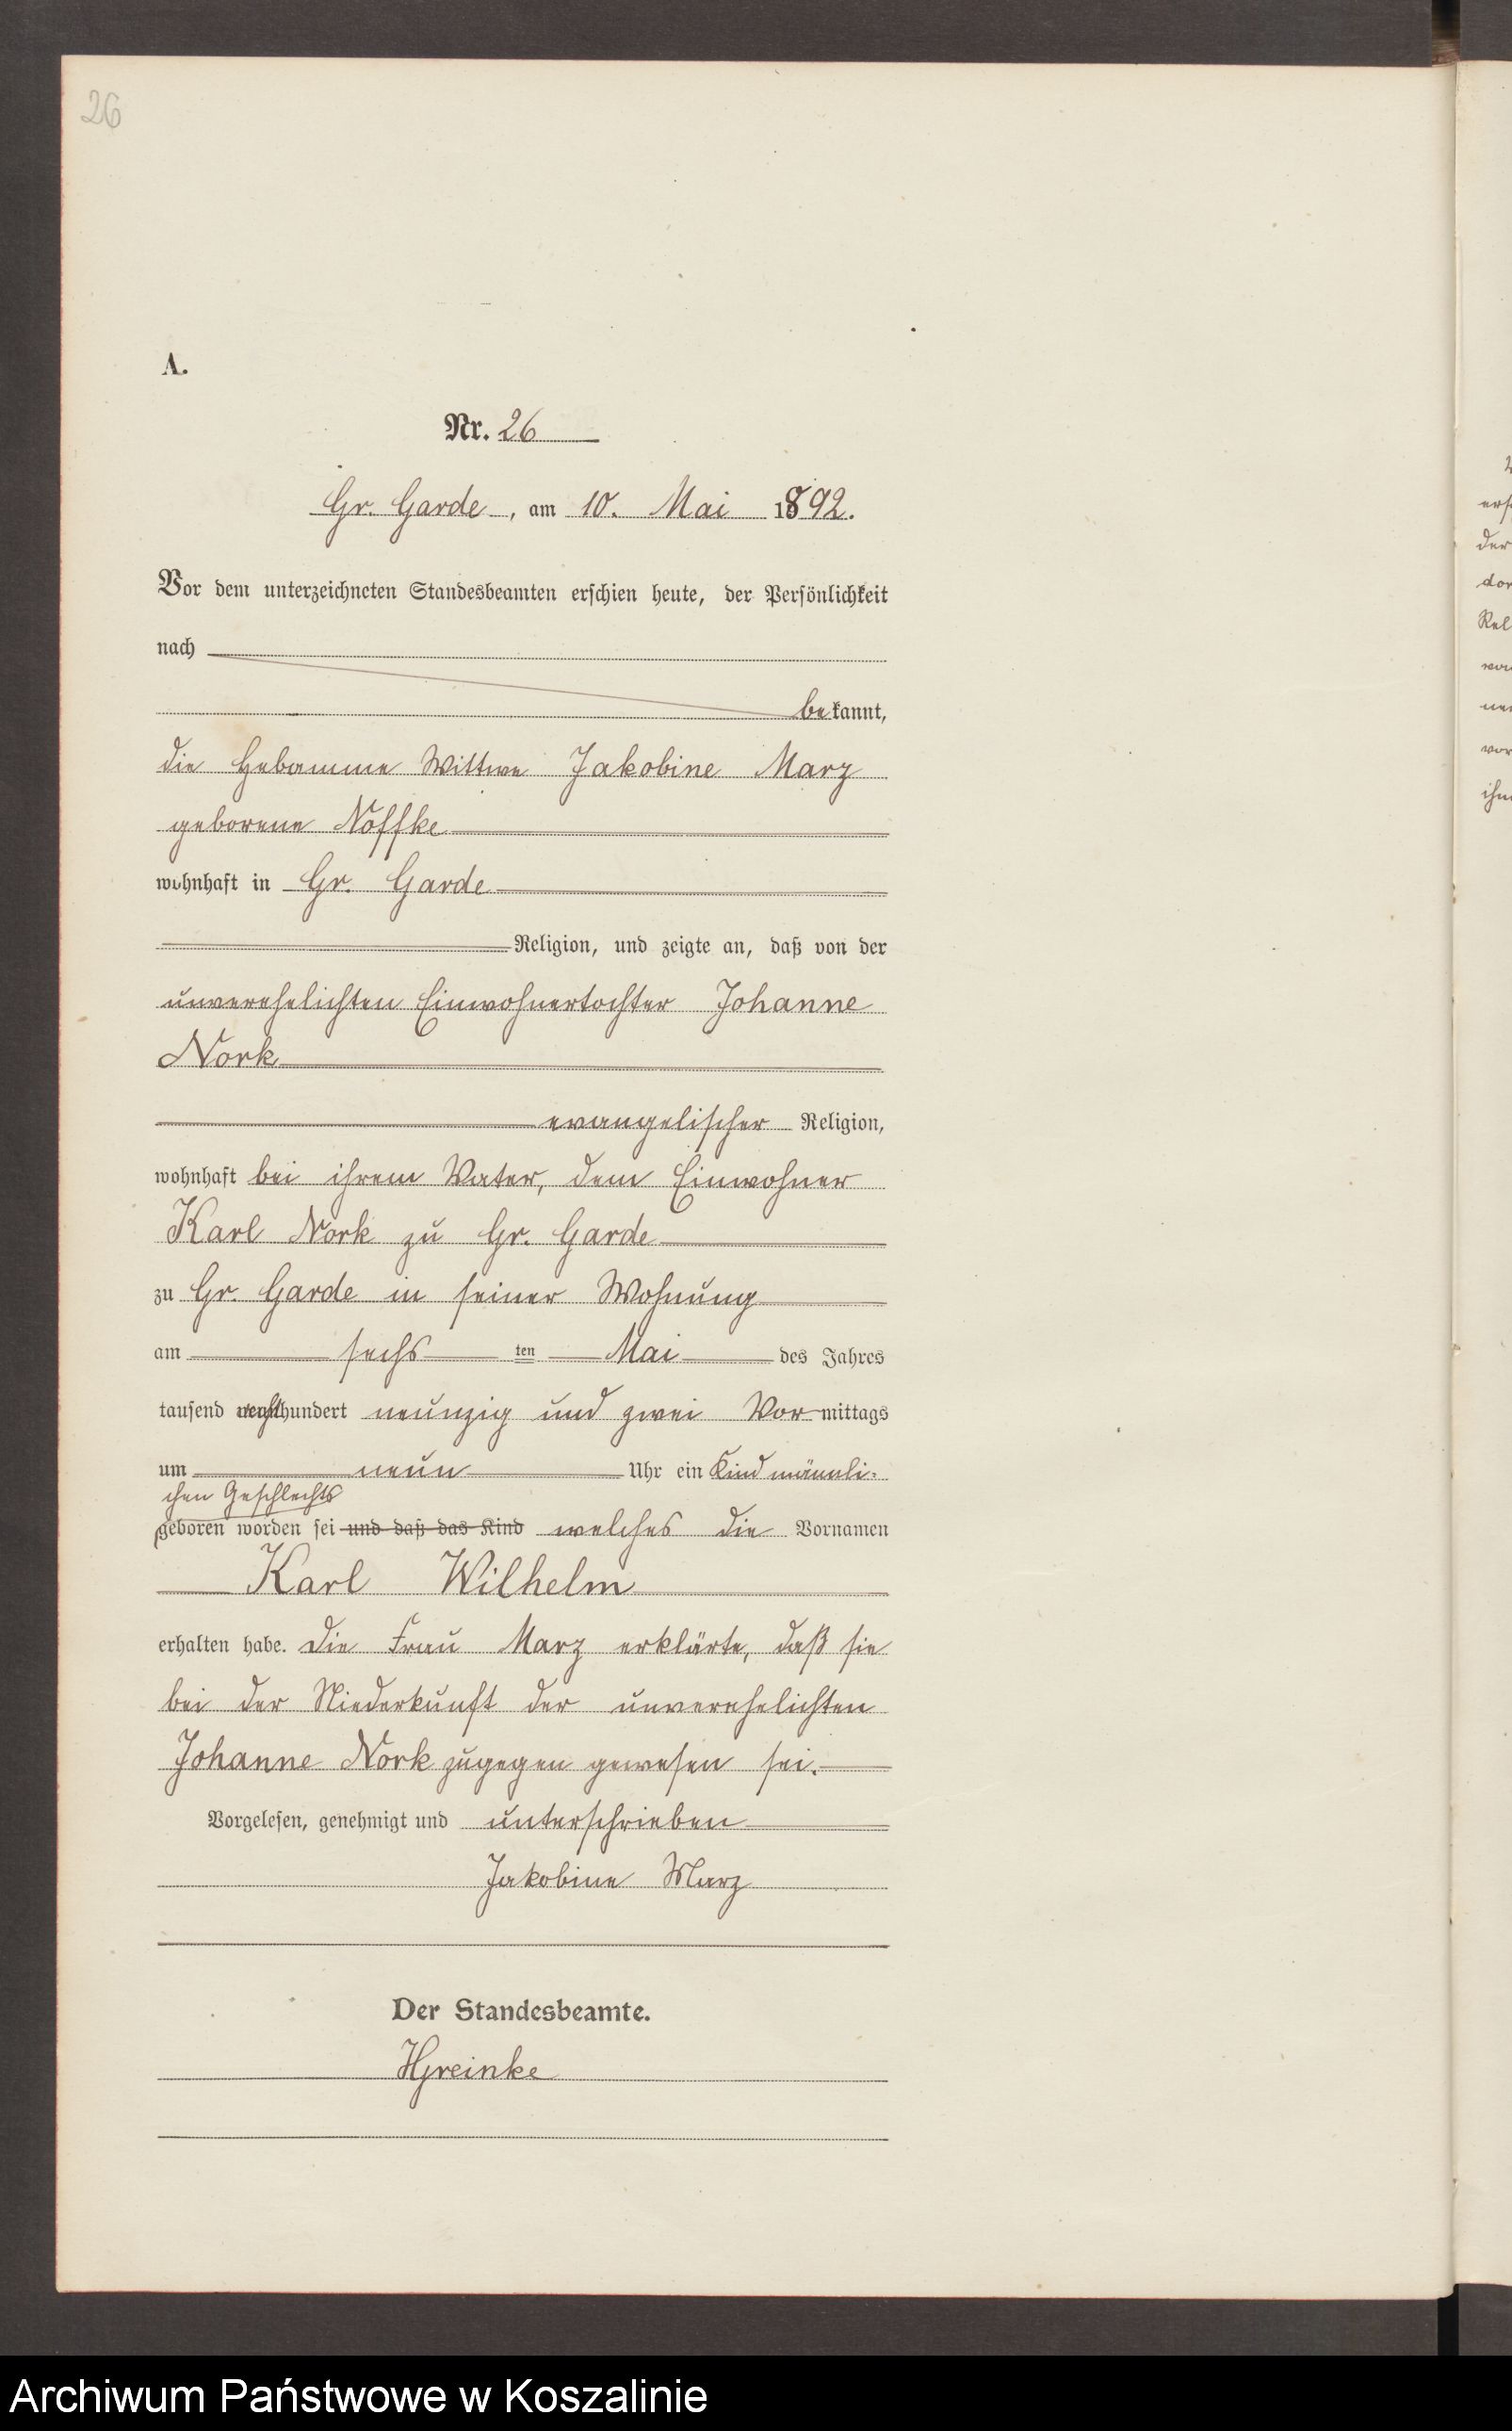 26
A.
Nr. 26
Gr. Garde, am 10. Mai 1892.
Vor dem unterzeichneten Standesbeamten erschien heute, der Persönlichkeit
nach
bekannt,
die Hebamme Wittwe Jakobine Marz
geborene Noffke
wohnhaft in Gr. Garde
Religion, und zeigte an, daß von der
unverehelichten Einwohnertochter Johanne
Nork
evangelischer Religion,
wohnhaft bei ihrem Vater, dem Einwohner
Karl Nork zu Gr. Garde
zu Gr. Garde in seiner Wohnung
am sechs ten Mai des Jahres
tausend achthundert neunzig und zwei Vormittags
um neun Uhr ein Kind männli-
chen Geschlechts
geboren worden sei und daß das Kind welches die Vornamen
Karl Wilhelm
erhalten habe. Die Frau Marz erklärte, daß sie
bei der Niederkunft der unverehelichten
Johanne Nork zugegen gewesen sei.
Vorgelesen, genehmigt und unterschrieben
Jakobine Marz
Der Standesbeamte.
HGreinke
Archiwum Państwowe w Koszalinie